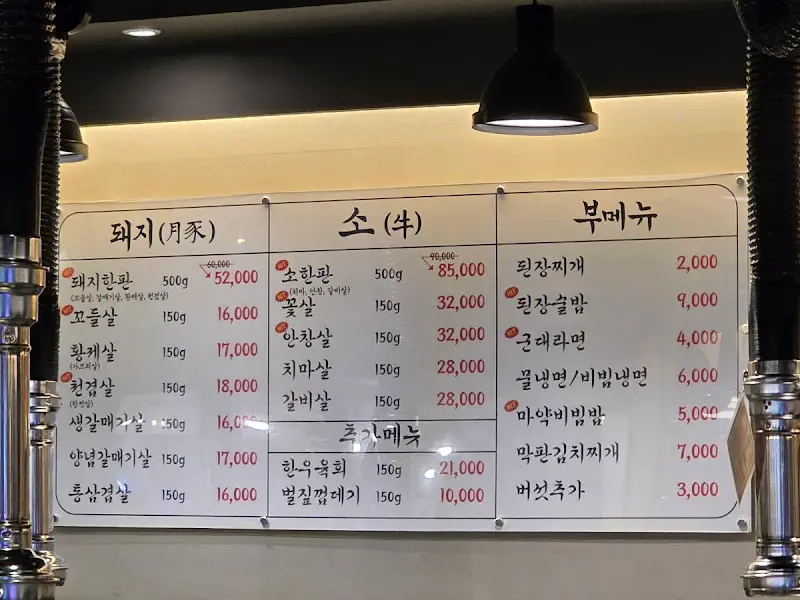 돼지(月豕)
60,000
돼지한판 500g 52,000
(꼬들살, 갈매기살, 황제살, 천겹살)
꼬들살 150g 16,000
황제살 150g 17,000
(가브리살)
천겹살 150g 18,000
생갈매기살 150g 16,000
양념갈매기살 150g 17,000
통삼겹살 150g 16,000
소(牛)
90,000
소한판 500g 85,000
(치마, 안창, 갈비살)
꽃살 150g 32,000
안창살 150g 32,000
치마살 150g 28,000
갈비살 150g 28,000
추가메뉴
한우육회 150g 21,000
벌집껍데기 150g 10,000
부메뉴
된장찌개 2,000
된장술밥 9,000
군대라면 4,000
물냉면/비빔냉면 6,000
마약비빔밥 5,000
막판김치찌개 7,000
버섯추가 3,000